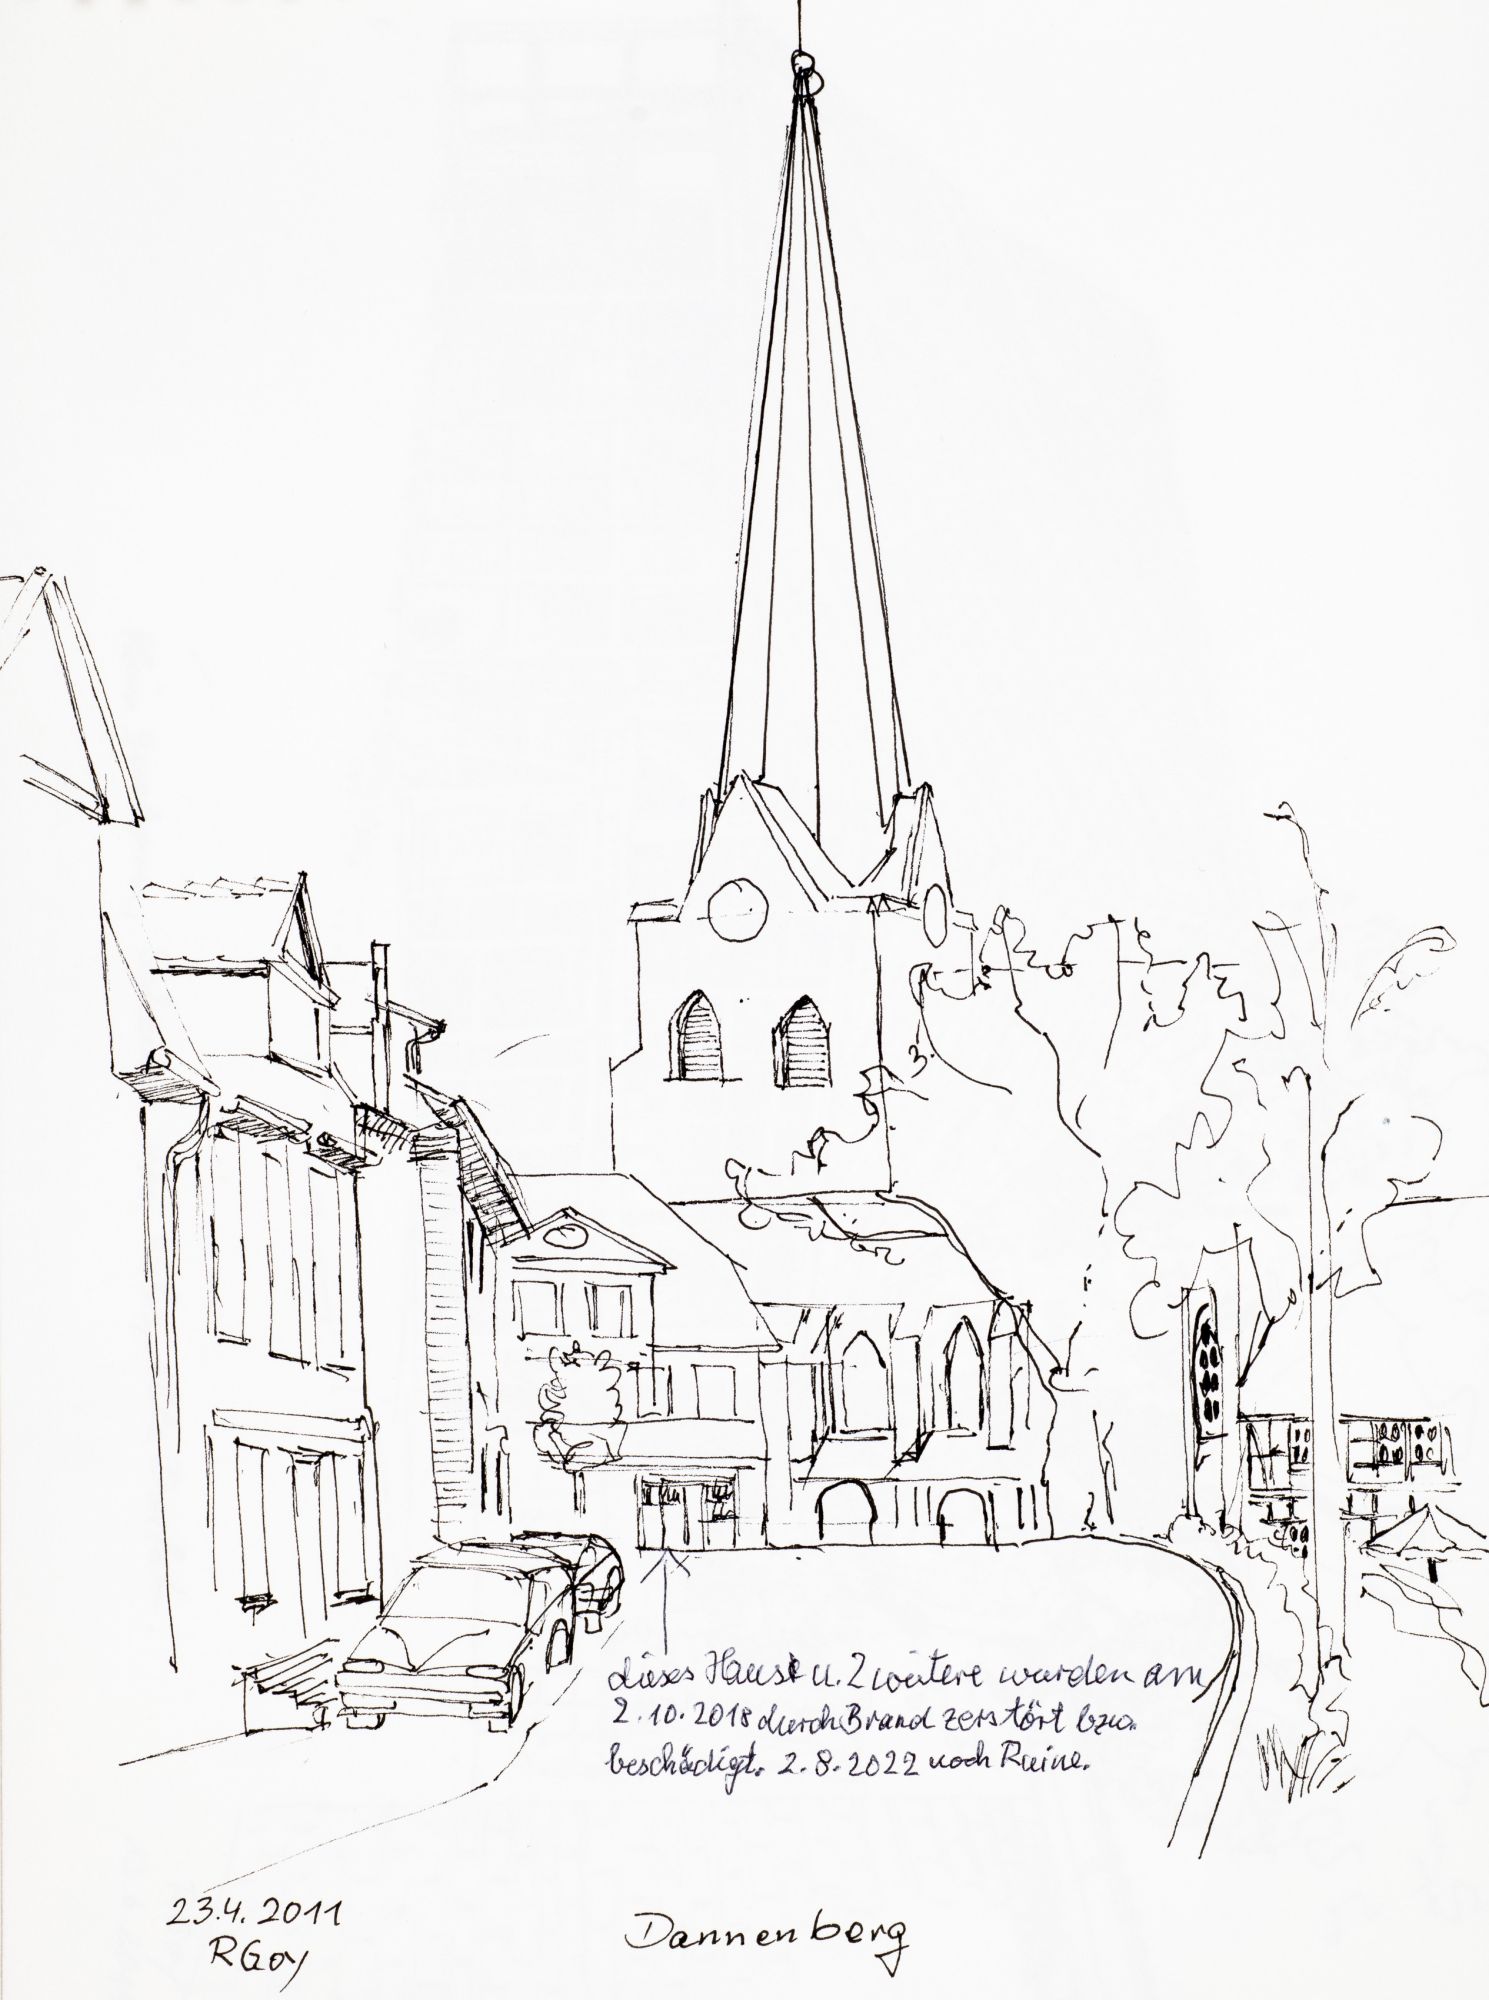 dieses Haus u. 2 weitere wurden am
2.10.2018 durch Brand zerstört bzw.
beschädigt. 2.8.2022 noch Ruine.
23.4.2011
RGoy
Dannenberg